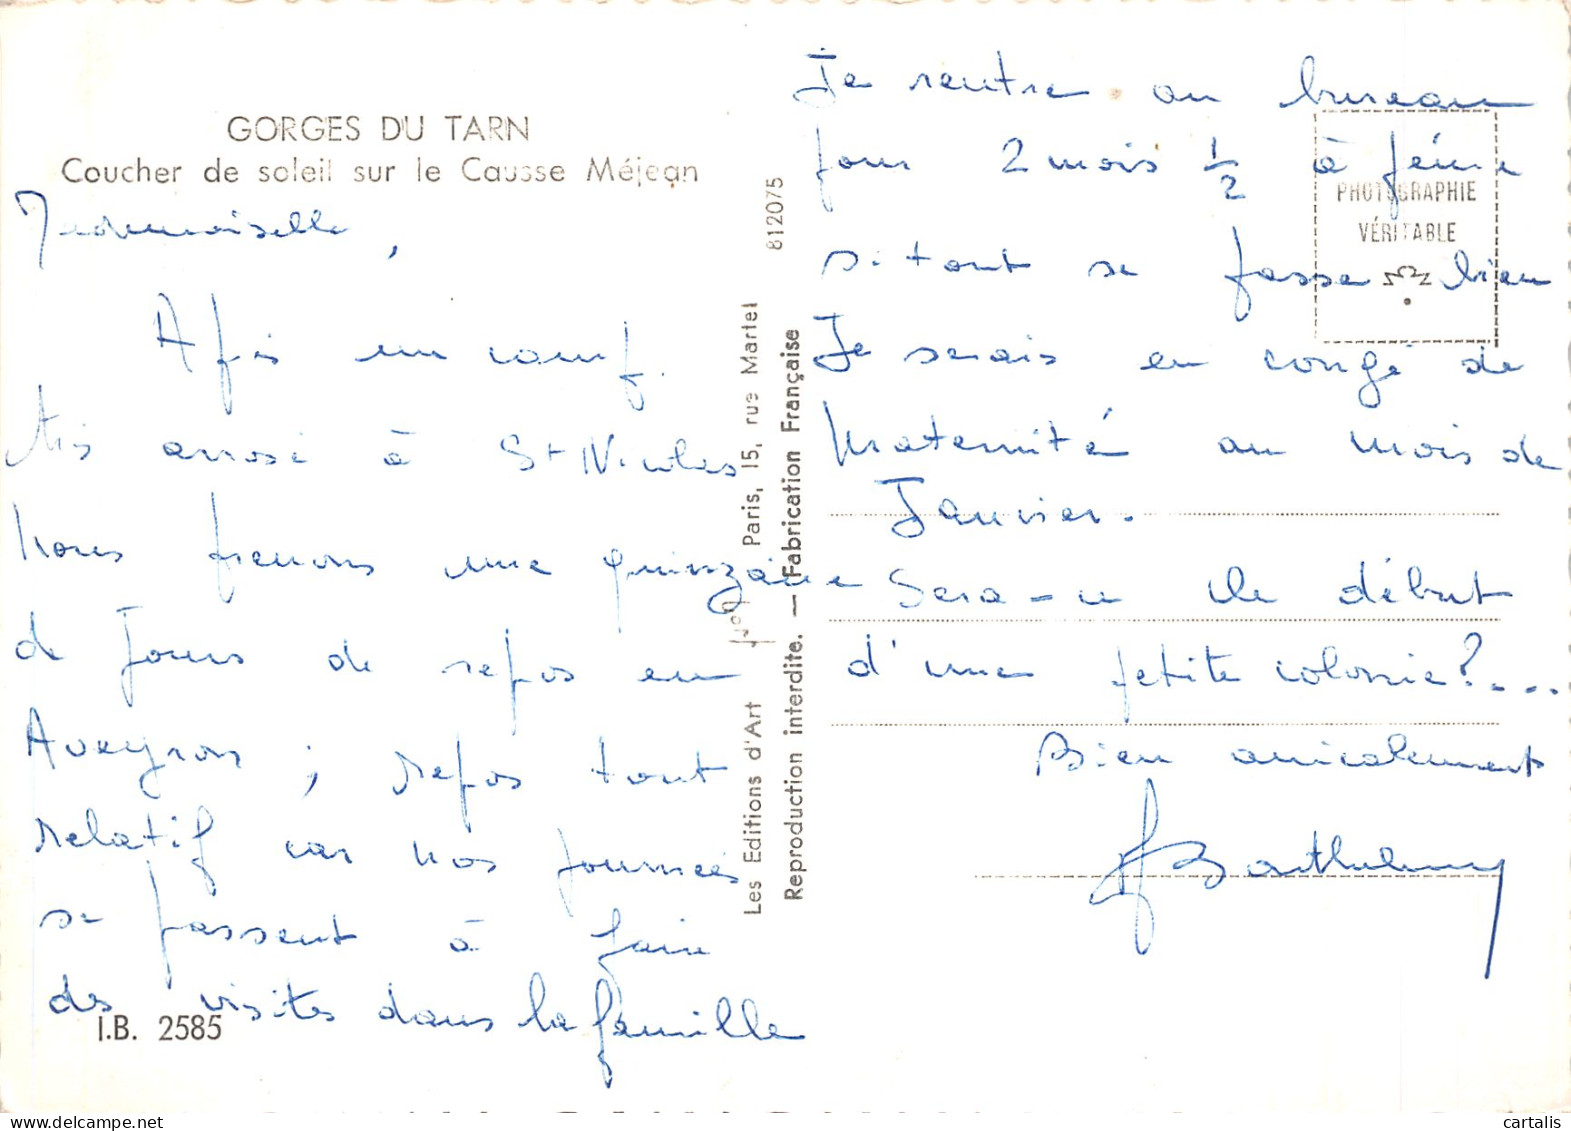 GORGES DU TARN
Coucher de soleil sur le Causse Méjean
Mademoiselle,
Après un camp.
très arrosé à St Nicolas
Nous prenons une quinzaine
de Jours de repos en
Aveyron ; repos tout
relatif car nos journées
se passent à faire
des visites dans la famille
I.B. 2585
Les Editions d'Art "Yvon" Paris, 15, rue Martel
Reproduction interdite. — Fabrication Française
812075
Je rentre au bureau
pour 2 mois 1/2 à peine
si tout se passe bien
Je serais en congé de
maternité au mois de
Janvier.
Sera-ce le début
d'une petite colonie?....
Bien amicalement
Barthelemy
PHOTOGRAPHIE
VÉRITABLE
cartalis